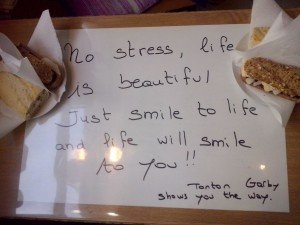 No stress, life
is beautiful
Just smile to life
and life will smile
to you!!
Tonton Garby
shows you the way.